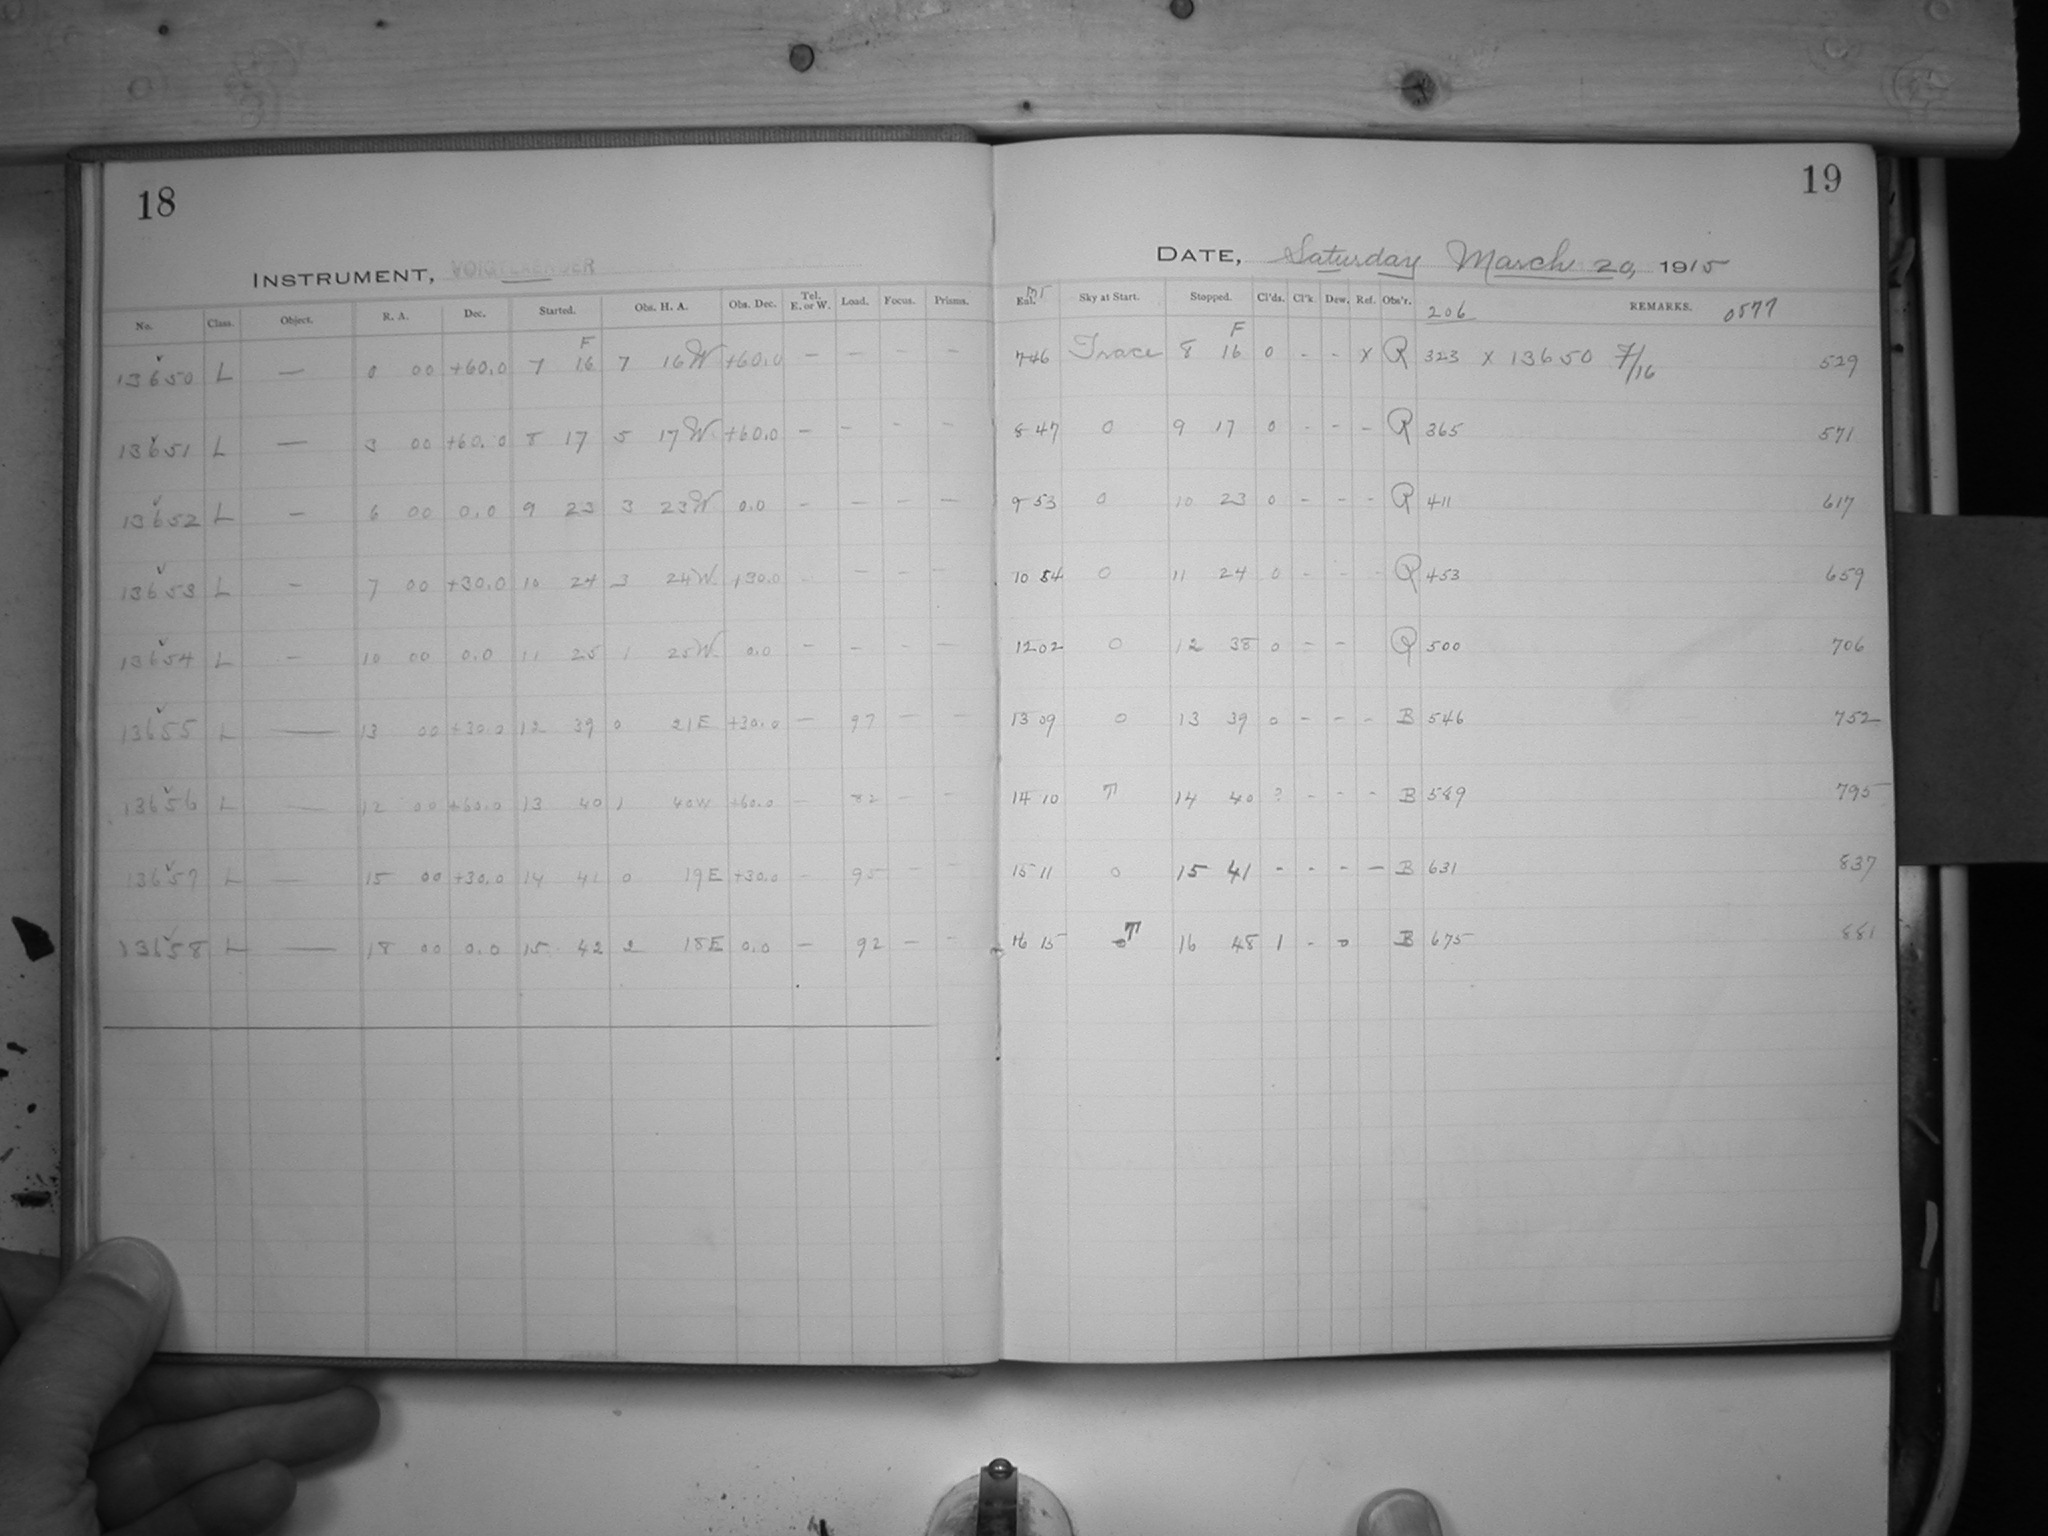 18
INSTRUMENT, VOIGTLAENDER
No. Class. Object. R. A. Dec. Started. Obs. H. A. Obs. Dec. Tel. E. or W. Load. Focus. Prisms.
13650 L — 0 00 +60.0 7 F 16 7 16 W +60.0 — — — —
13651 L — 3 00 +60.0 8 17 5 17 W +60.0 — — — —
13652 L — 6 00 0.0 9 23 3 23 W 0.0 — — — —
13653 L — 7 00 +30.0 10 24 3 24 W +30.0 — — — —
13654 L — 10 00 0.0 11 25 1 25 W 0.0 — — — —
13655 L — 13 00 +30.0 12 39 0 21 E +30.0 — 97 — —
13656 L — 12 00 +60.0 13 40 1 40 W +60.0 — 82 — —
13657 L — 15 00 +30.0 14 41 0 19 E +30.0 — 95 — —
13658 L — 18 00 0.0 15 42 2 18 E 0.0 — 92 — —
19
DATE, Saturday March 20, 1915
Sky at Start. Stopped. Cl'ds. Cl'k. Dew. Ref. Obs'r. 206 REMARKS. 0577
7 46 Trace 8 F 16 0 - - x R 323 x 13650 7/16 529
8 47 0 9 17 0 - - - R 365 571
9 53 0 10 23 0 - - - R 411 617
10 54 0 11 24 0 - - - R 453 659
12 02 0 12 38 0 - - R 500 706
13 09 0 13 39 0 - - - B 546 752
14 10 T 14 40 ? - - - B 589 795
15 11 0 15 41 - - - - B 631 837
16 15 T 16 48 1 - 0 B 675 881